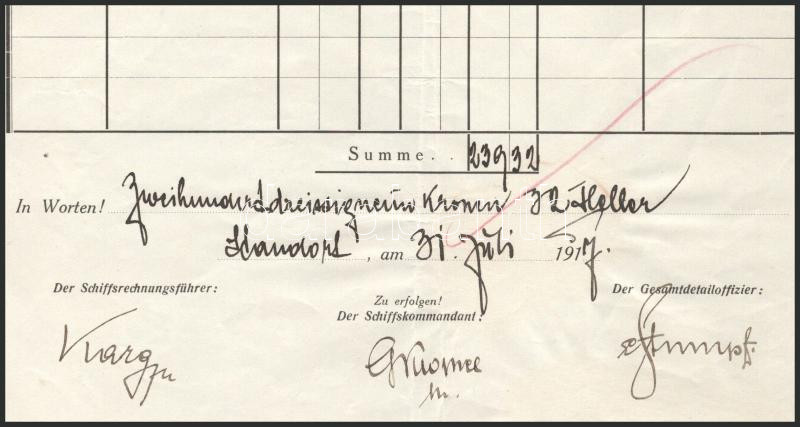 Summe . . 239 32
In Worten! Zweihundertdreissigneun Kronen 32 Heller
Standort, am 31. Juli 1917.
Der Schiffsrechnungsführer:
Zu erfolgen!
Der Gesamtdetailoffizier:
Der Schiffskommandant: